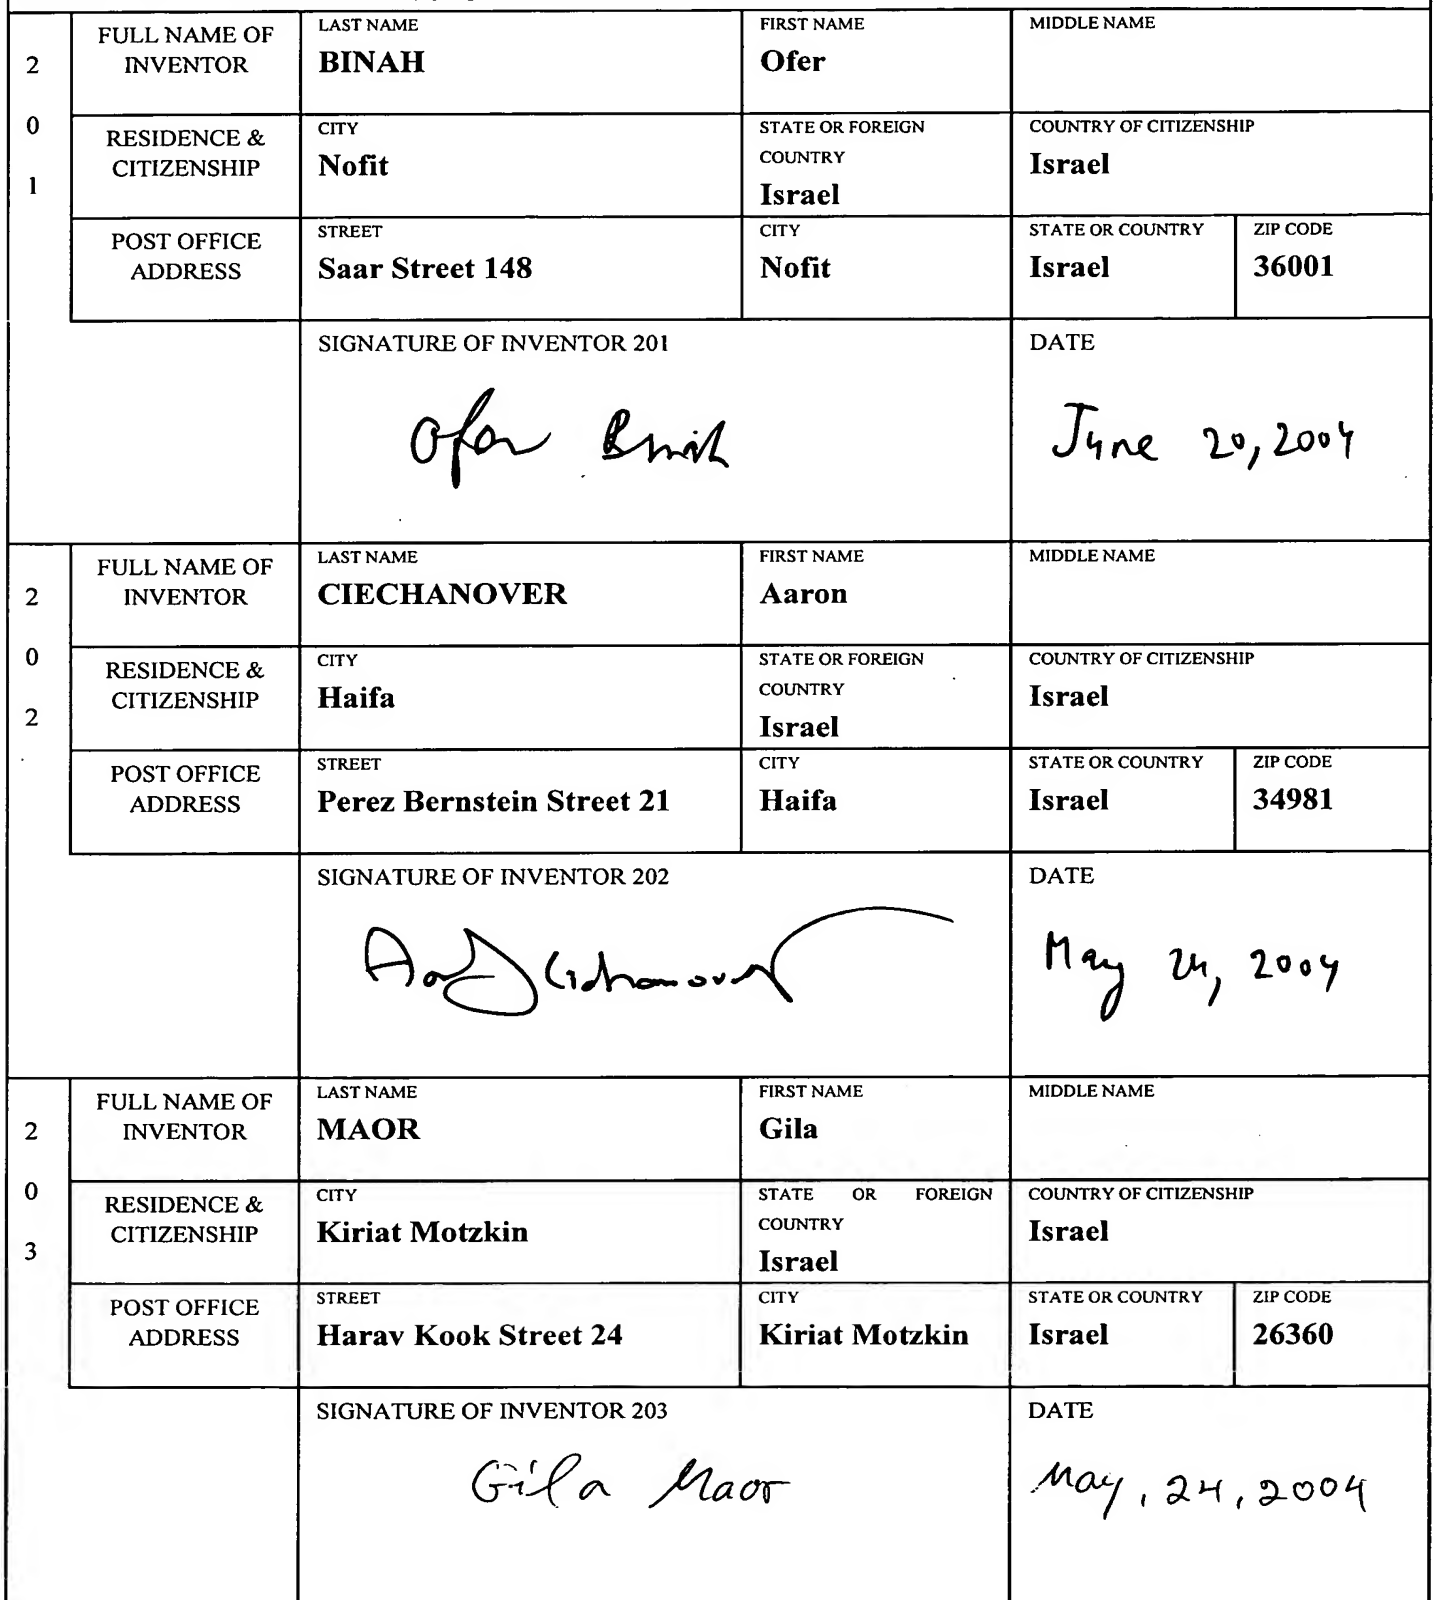 FULL NAME OF INVENTOR
LAST NAME
BINAH
FIRST NAME
Ofer
MIDDLE NAME
2
0
1
RESIDENCE & CITIZENSHIP
CITY
Nofit
STATE OR FOREIGN
COUNTRY
Israel
COUNTRY OF CITIZENSHIP
Israel
POST OFFICE ADDRESS
STREET
Saar Street 148
CITY
Nofit
STATE OR COUNTRY
Israel
ZIP CODE
36001
SIGNATURE OF INVENTOR 201
Ofer Binah
DATE
June 20, 2004
FULL NAME OF INVENTOR
LAST NAME
CIECHANOVER
FIRST NAME
Aaron
MIDDLE NAME
2
0
2
RESIDENCE & CITIZENSHIP
CITY
Haifa
STATE OR FOREIGN
COUNTRY
Israel
COUNTRY OF CITIZENSHIP
Israel
POST OFFICE ADDRESS
STREET
Perez Bernstein Street 21
CITY
Haifa
STATE OR COUNTRY
Israel
ZIP CODE
34981
SIGNATURE OF INVENTOR 202
Aaron Ciechanover
DATE
May 24, 2004
FULL NAME OF INVENTOR
LAST NAME
MAOR
FIRST NAME
Gila
MIDDLE NAME
2
0
3
RESIDENCE & CITIZENSHIP
CITY
Kiriat Motzkin
STATE OR FOREIGN
COUNTRY
Israel
COUNTRY OF CITIZENSHIP
Israel
POST OFFICE ADDRESS
STREET
Harav Kook Street 24
CITY
Kiriat Motzkin
STATE OR COUNTRY
Israel
ZIP CODE
26360
SIGNATURE OF INVENTOR 203
Gila Maor
DATE
May, 24, 2004